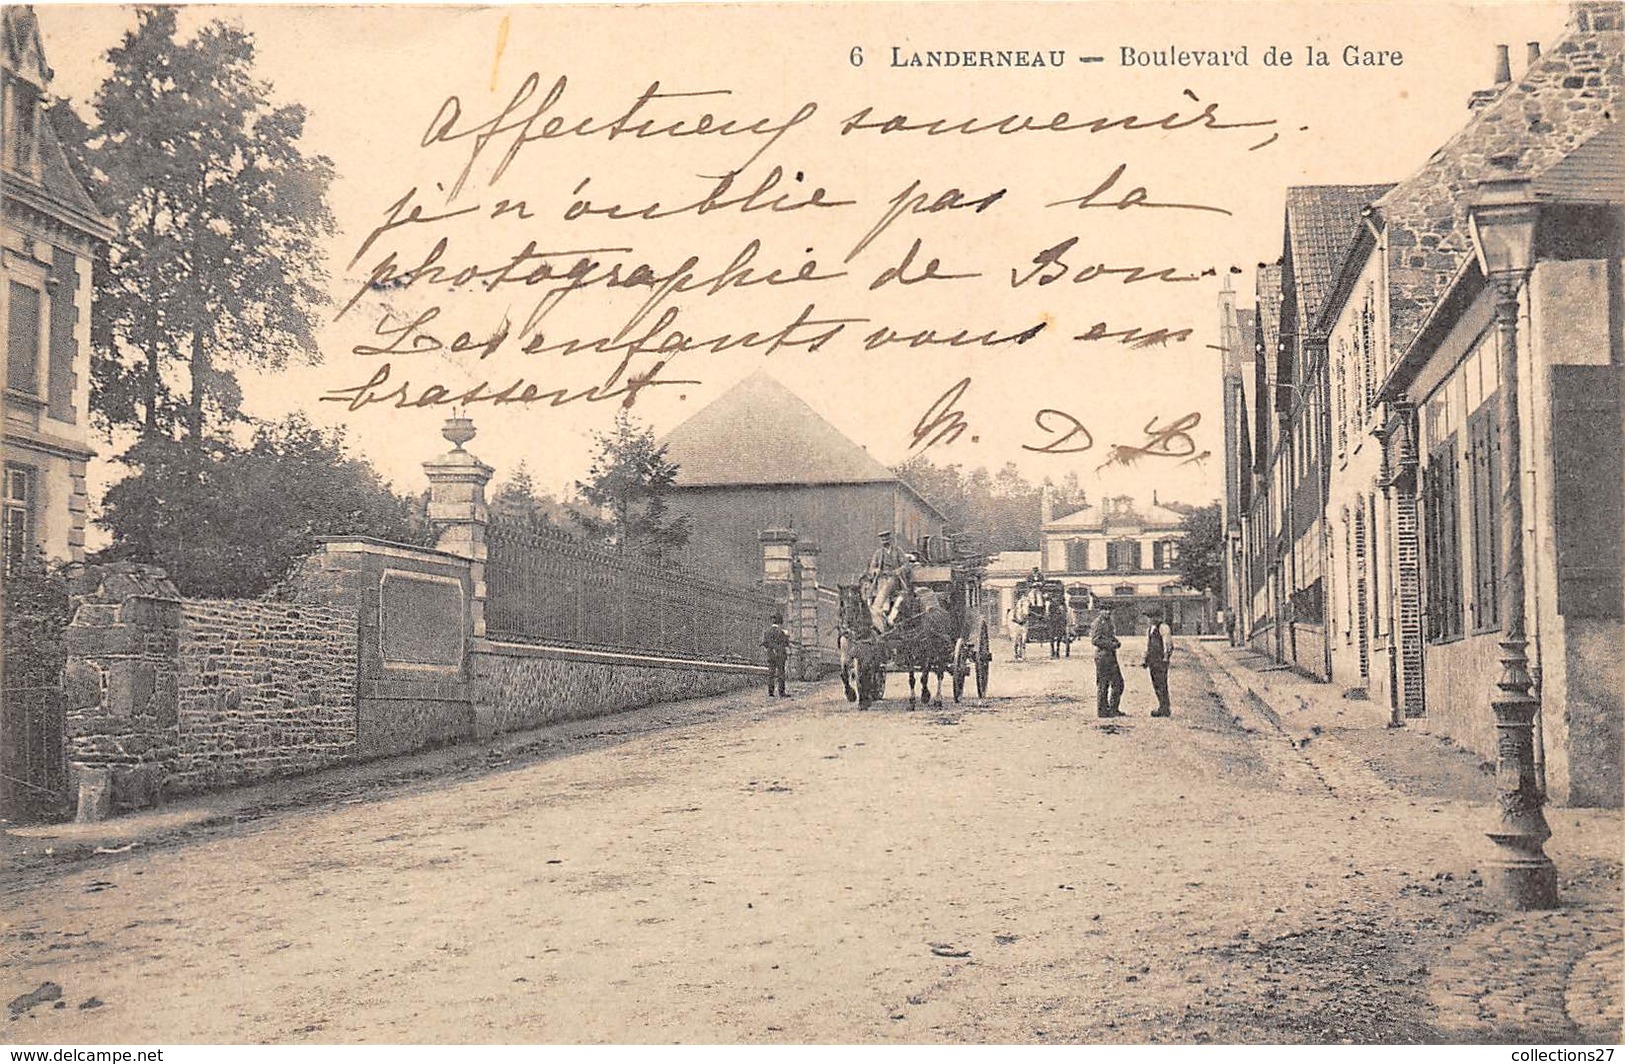 6 LANDERNEAU — Boulevard de la Gare
Affectueux souvenir,.
je n'oublie pas la
photographie de Bon...
Les enfants vous em
brassent.
M. D. L.
www.delcampe.net
collections27